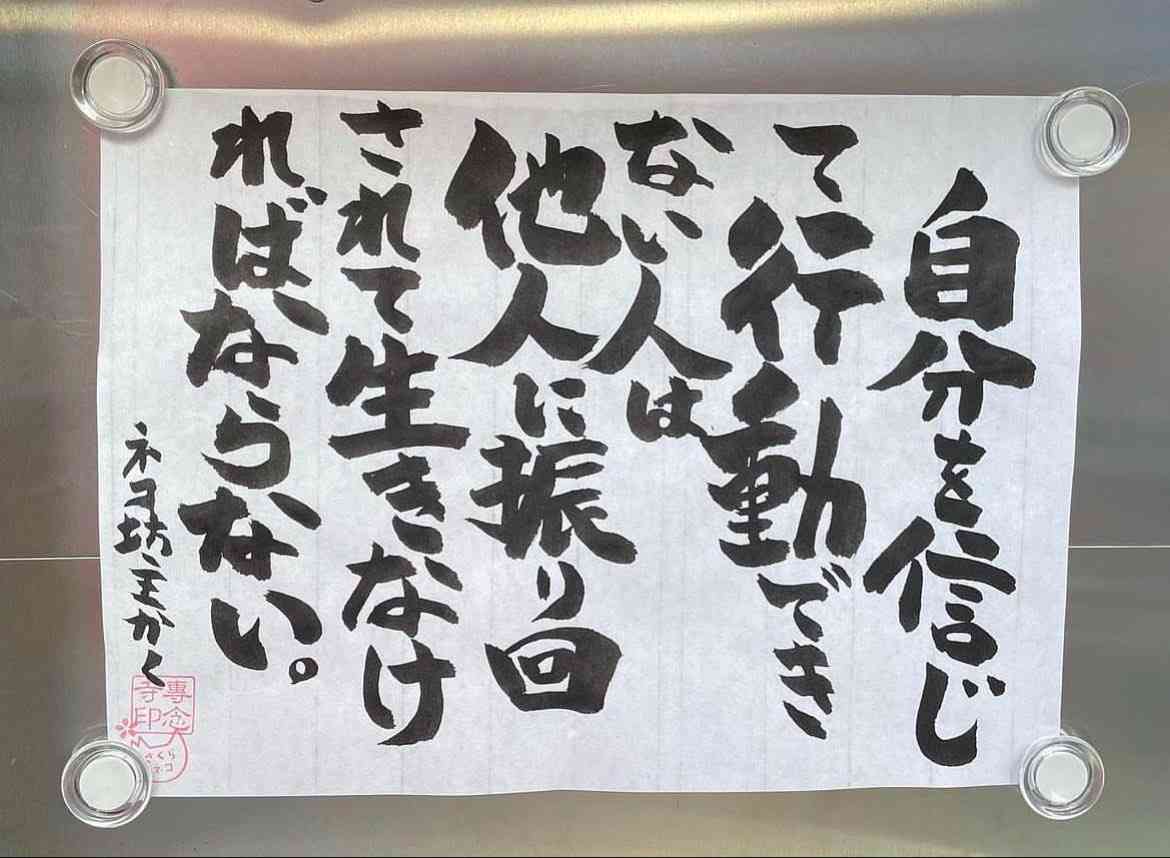 自分を信じ
て行動でき
ない人は
他人に振り回
されて生きなけ
ればならない。
ネコ坊主かく
專念
寺印
さくら
ネコ